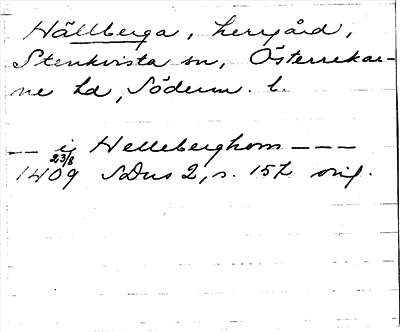 Hällberga, herrgård,
Stenkvista sn, Österrekar-
ne hd, Söderm. l.
— — ij Helleberghom — — —
23/8
1409 SDns 2, s. 157 orig.